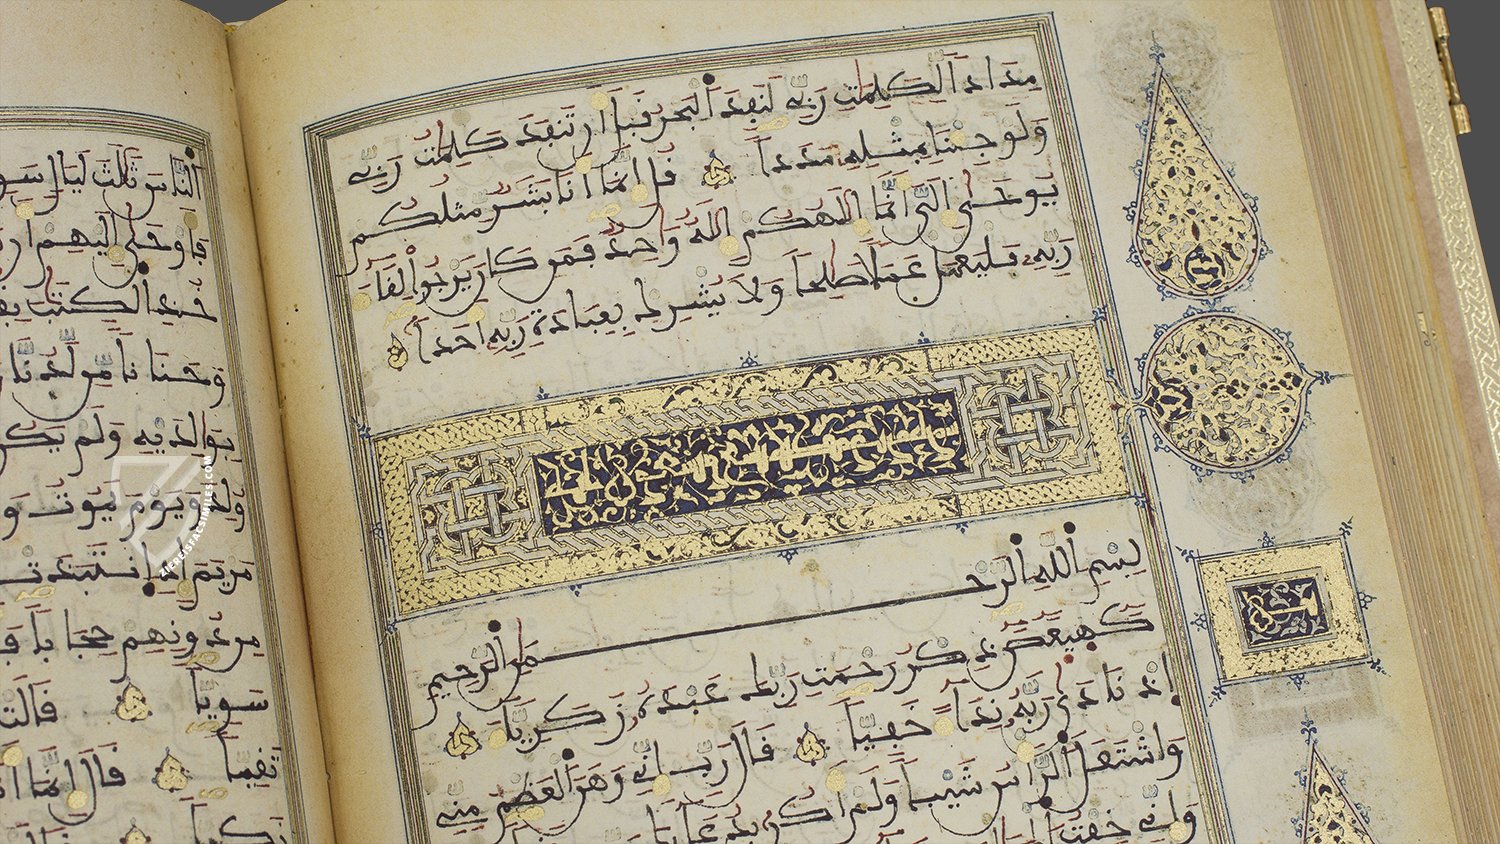 مدادا لكلمت ربي لنفد البحر قبل ان تنفد كلمت ربي
ولو جئنا بمثله مددا قل انما انا بشر مثلكم
يوحى الي انما الهكم اله واحد فمن كان يرجوا لقاء
ربه فليعمل عملا صلحا ولا يشرك بعبادة ربه احدا
بسم الله الرحمن الرحيم
كهيعص ذكر رحمت ربك عبده زكرياء
اذ نادى ربه نداء خفيا قال رب اني وهن العظم مني
واشتعل الراس شيبا ولم اكن بدعائك
واني خفت
الناس ثلث ليال سو
فاوحى اليهم ان
خذ الكتب بقو
وحنانا من لدنا
بوالديه ولم يكن
ولد ويوم يموت و
مريم اذ انتبذت
من دونهم حجابا فا
سويا قالت
تقيا قال انما
زكيا
ZIEREISFACSIMILES.COM